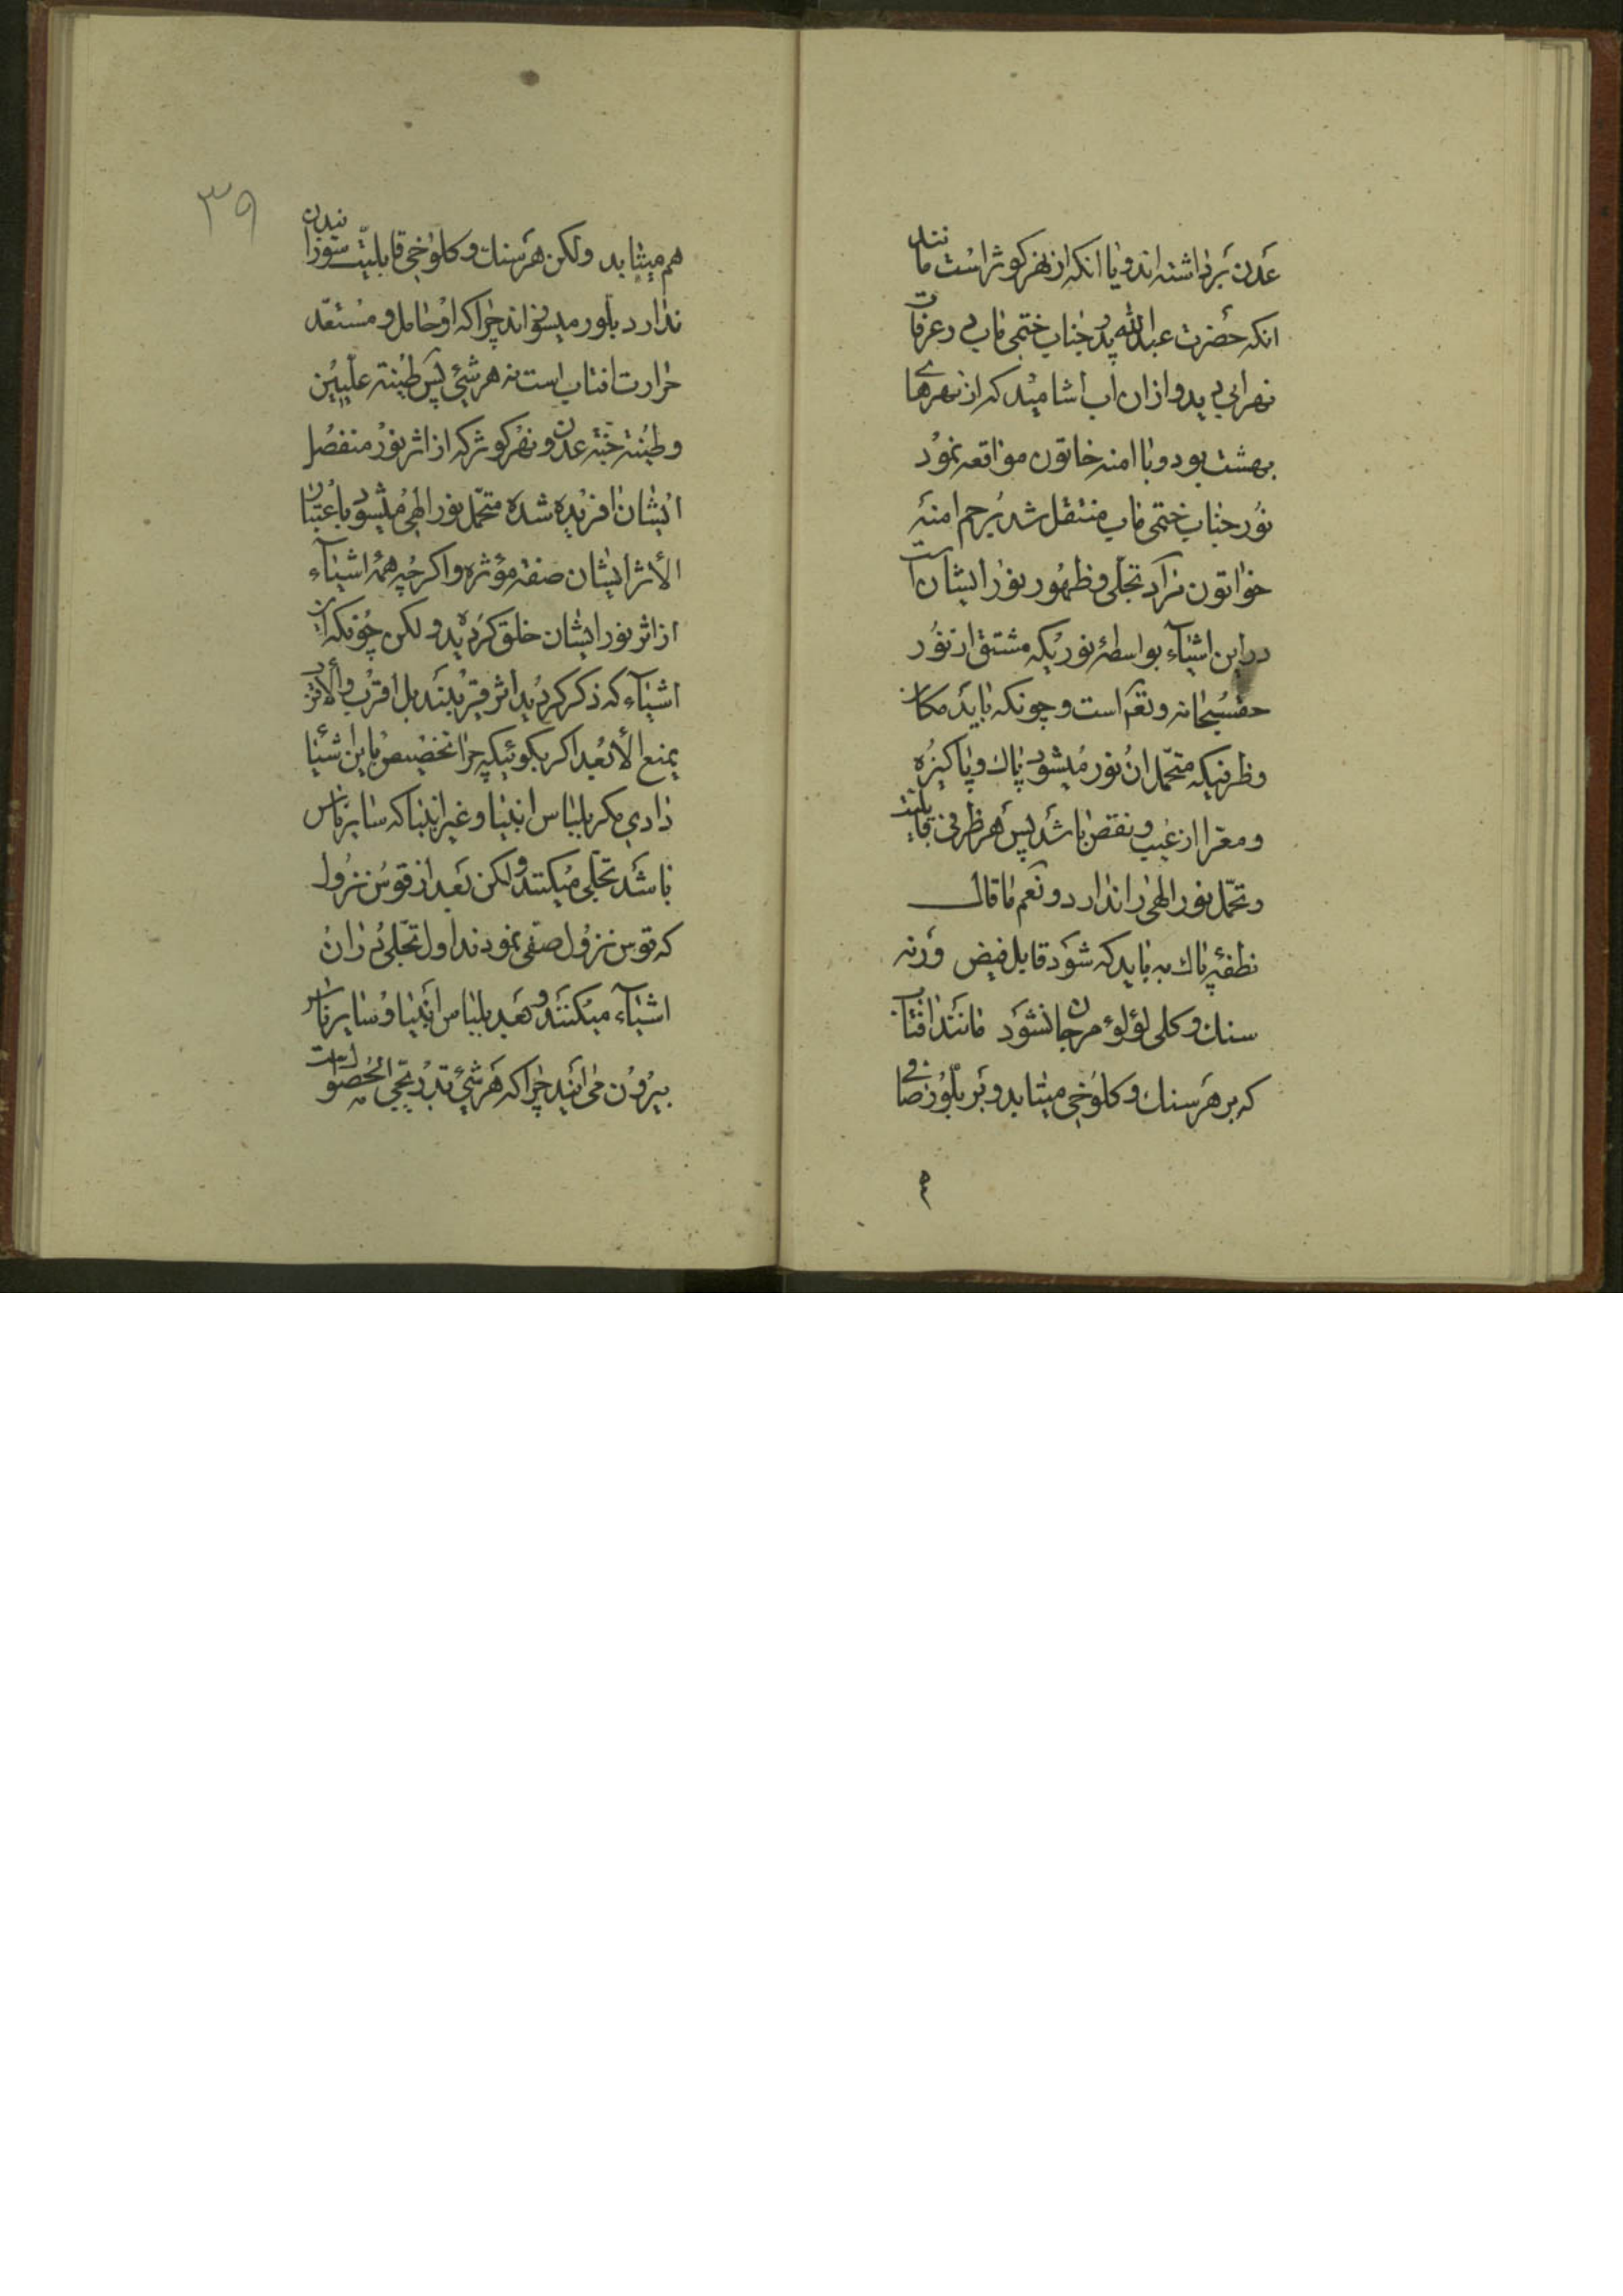 عدن برداشته اند و یا انکه از نهر کوثر است مانند
انکه حضرت عبدالله پدر جناب ختمی ماب در عرفات
نهر ابی دید و از ان اب اشامید که از نهرهای
بهشت بود و با امنه خاتون مواقعه نمود
نور جناب ختمی ماب منتقل شد برحم امنهٔ
خواتون نژاد تجلی و ظهور نور ایشان است
در این اشیآء بواسطهٔ نوریکه مشتق از نور
حقسبحانه و تعم است و چونکه باید مکان
و ظرفیکه متحمل ان نور میشود پاك و پاکیزه
و معرا از عیب و نقص باشد پس هر ظرفی قابلیت
و تحمل نور الهی را ندارد و نعم ما قال
نطفهٔ پاك به باید که شود قابل فیض ورنه
سنك و کلی لؤلؤ مرجان نشود مانند افتاب
که بر هر سنك و کلوخی میتابد و بر بلور صافی
۳۹
هم میتابد ولکن هر سنك و کلوخی قابلیت سوزانیدن
ندارد بلور میسوزاند چرا که او حامل و مستعد
حرارت افتاب است نه هر شیئ پس طینة علیین
و طینة جنة عدن و نهر کوثر که از اثر نور منفصل
ایشان افریده شده متحمل نور الهی میشود باعتبار
الأثر ایشان صفة مؤثره و اکر چه همهٔ اشیآء
از اثر نور ایشان خلق کردید ولکن چونکه این
اشیآء که ذکر کردید اثر قریبند بل اقرب والأقرب
یمنع الأبعد اکر بکوئیکه چرا تخصیص باین اشیا
دادی مکر بلباس انبیا و غیر انبیا که سایر ناس
باشد تجلی میکنند ولکن بعد از قوس نزول
که قوس نزول صفی نمودند اول تجلی در ان
اشیآء میکنند و بعد بلباس انبیا و سایر ناس
بیرون می ایند چرا که هر شیئ تدریجی الحصول است